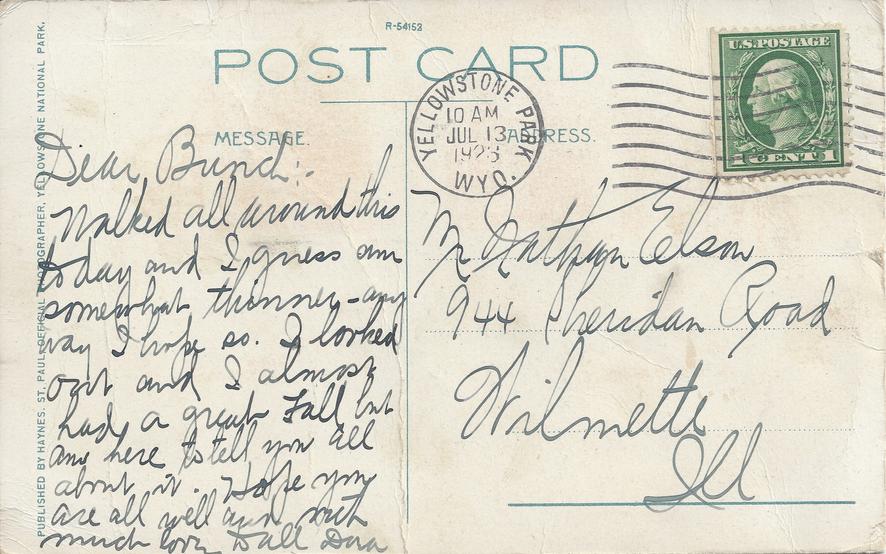 R-54153
POST CARD
PUBLISHED BY HAYNES, ST. PAUL, OFFICIAL PHOTOGRAPHER, YELLOWSTONE NATIONAL PARK.
MESSAGE.
Dear Bunch:-
Walked all around this
today and I guess am
somewhat thinner - any
way I hope so. I looked
out and I almost
had a great Fall but
am here to tell you all
about it. Hope you
are all well and with
much love to all
YELLOWSTONE PARK,
10 AM
JUL 13
WYO.
ADDRESS.
U.S. POSTAGE
1 CENT 1
Mr Nathan Elson
944 Sheridan Road
Wilmette
Ill